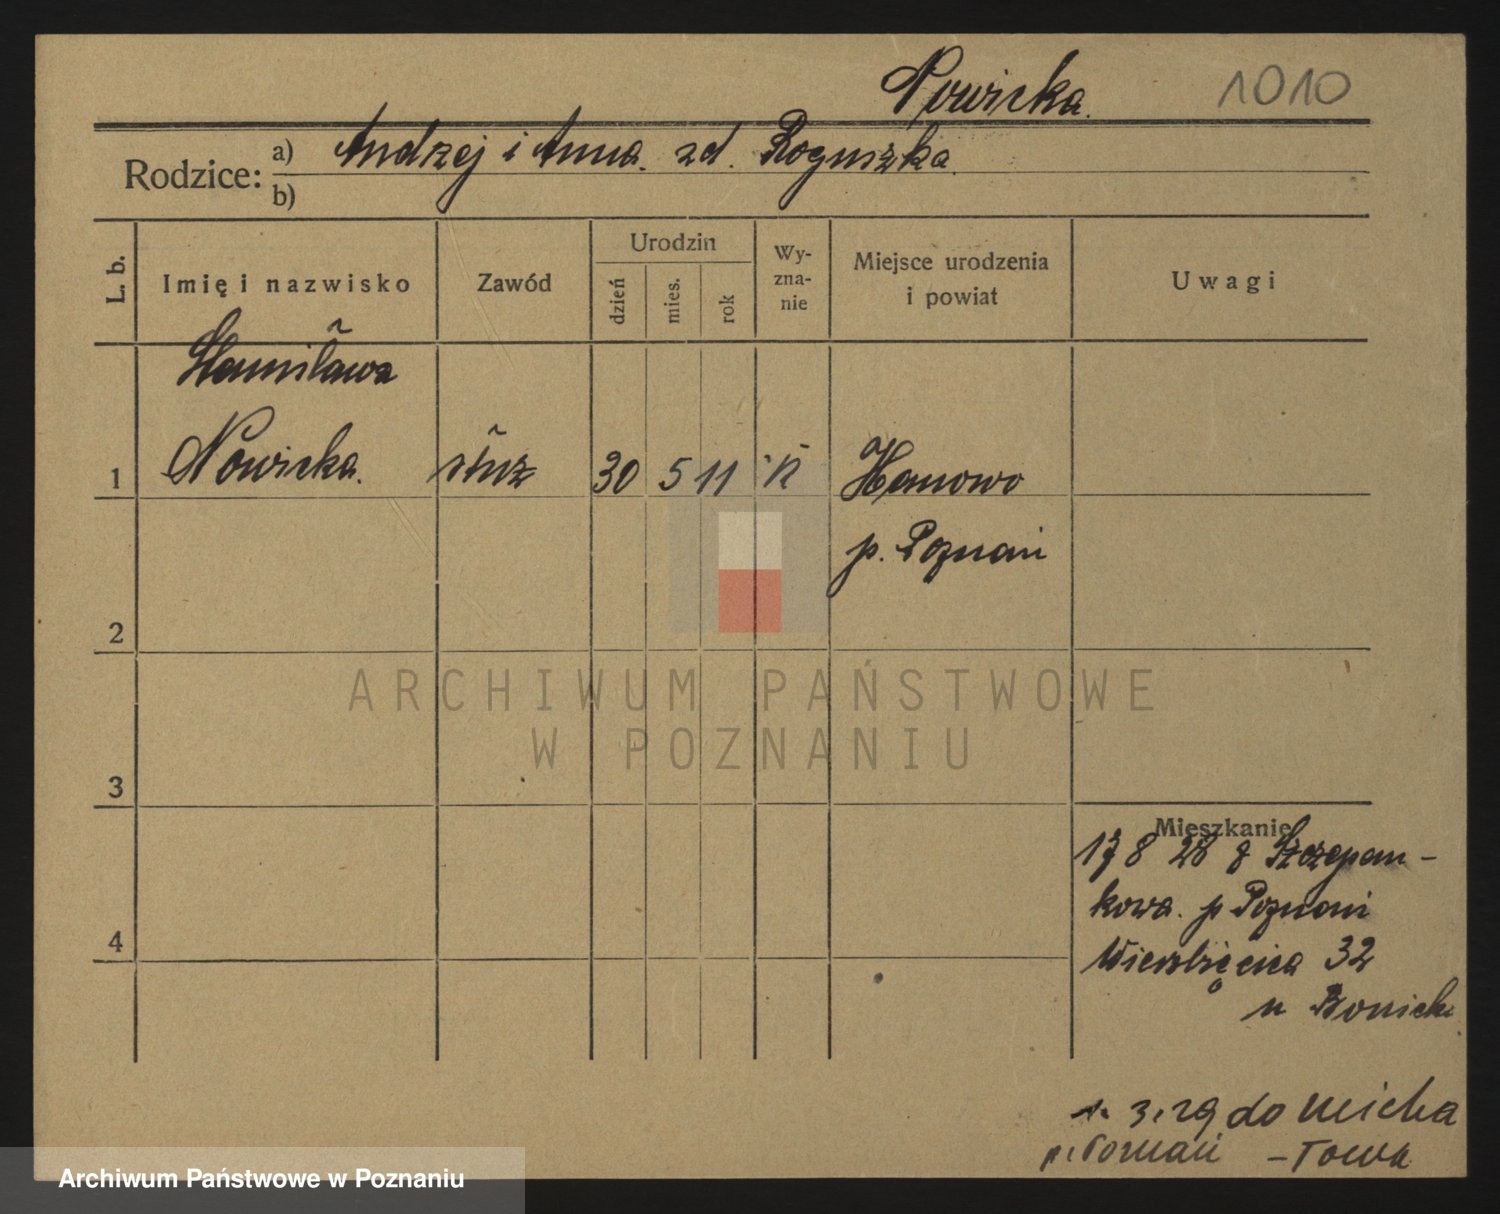 Nowicka. 1010
Rodzice: a) Andrzej i Anna. zd. Roguszka.
b)
L. b. Imię i nazwisko Zawód Urodzin dzień mies. rok Wy-zna-nie Miejsce urodzenia i powiat Uwagi
Stanisława
1 Nowicka. służ 30 5 11 k Hanowo
p. Poznań
2
ARCHIWUM PAŃSTWOWE
W POZNANIU
3
Mieszkanie
17 8 28 z Szczepan-
kowa. p Poznań
4 Wierzbięcice 32
u
3.29 do Micha
p. Poznań - Towa
Archiwum Państwowe w Poznaniu